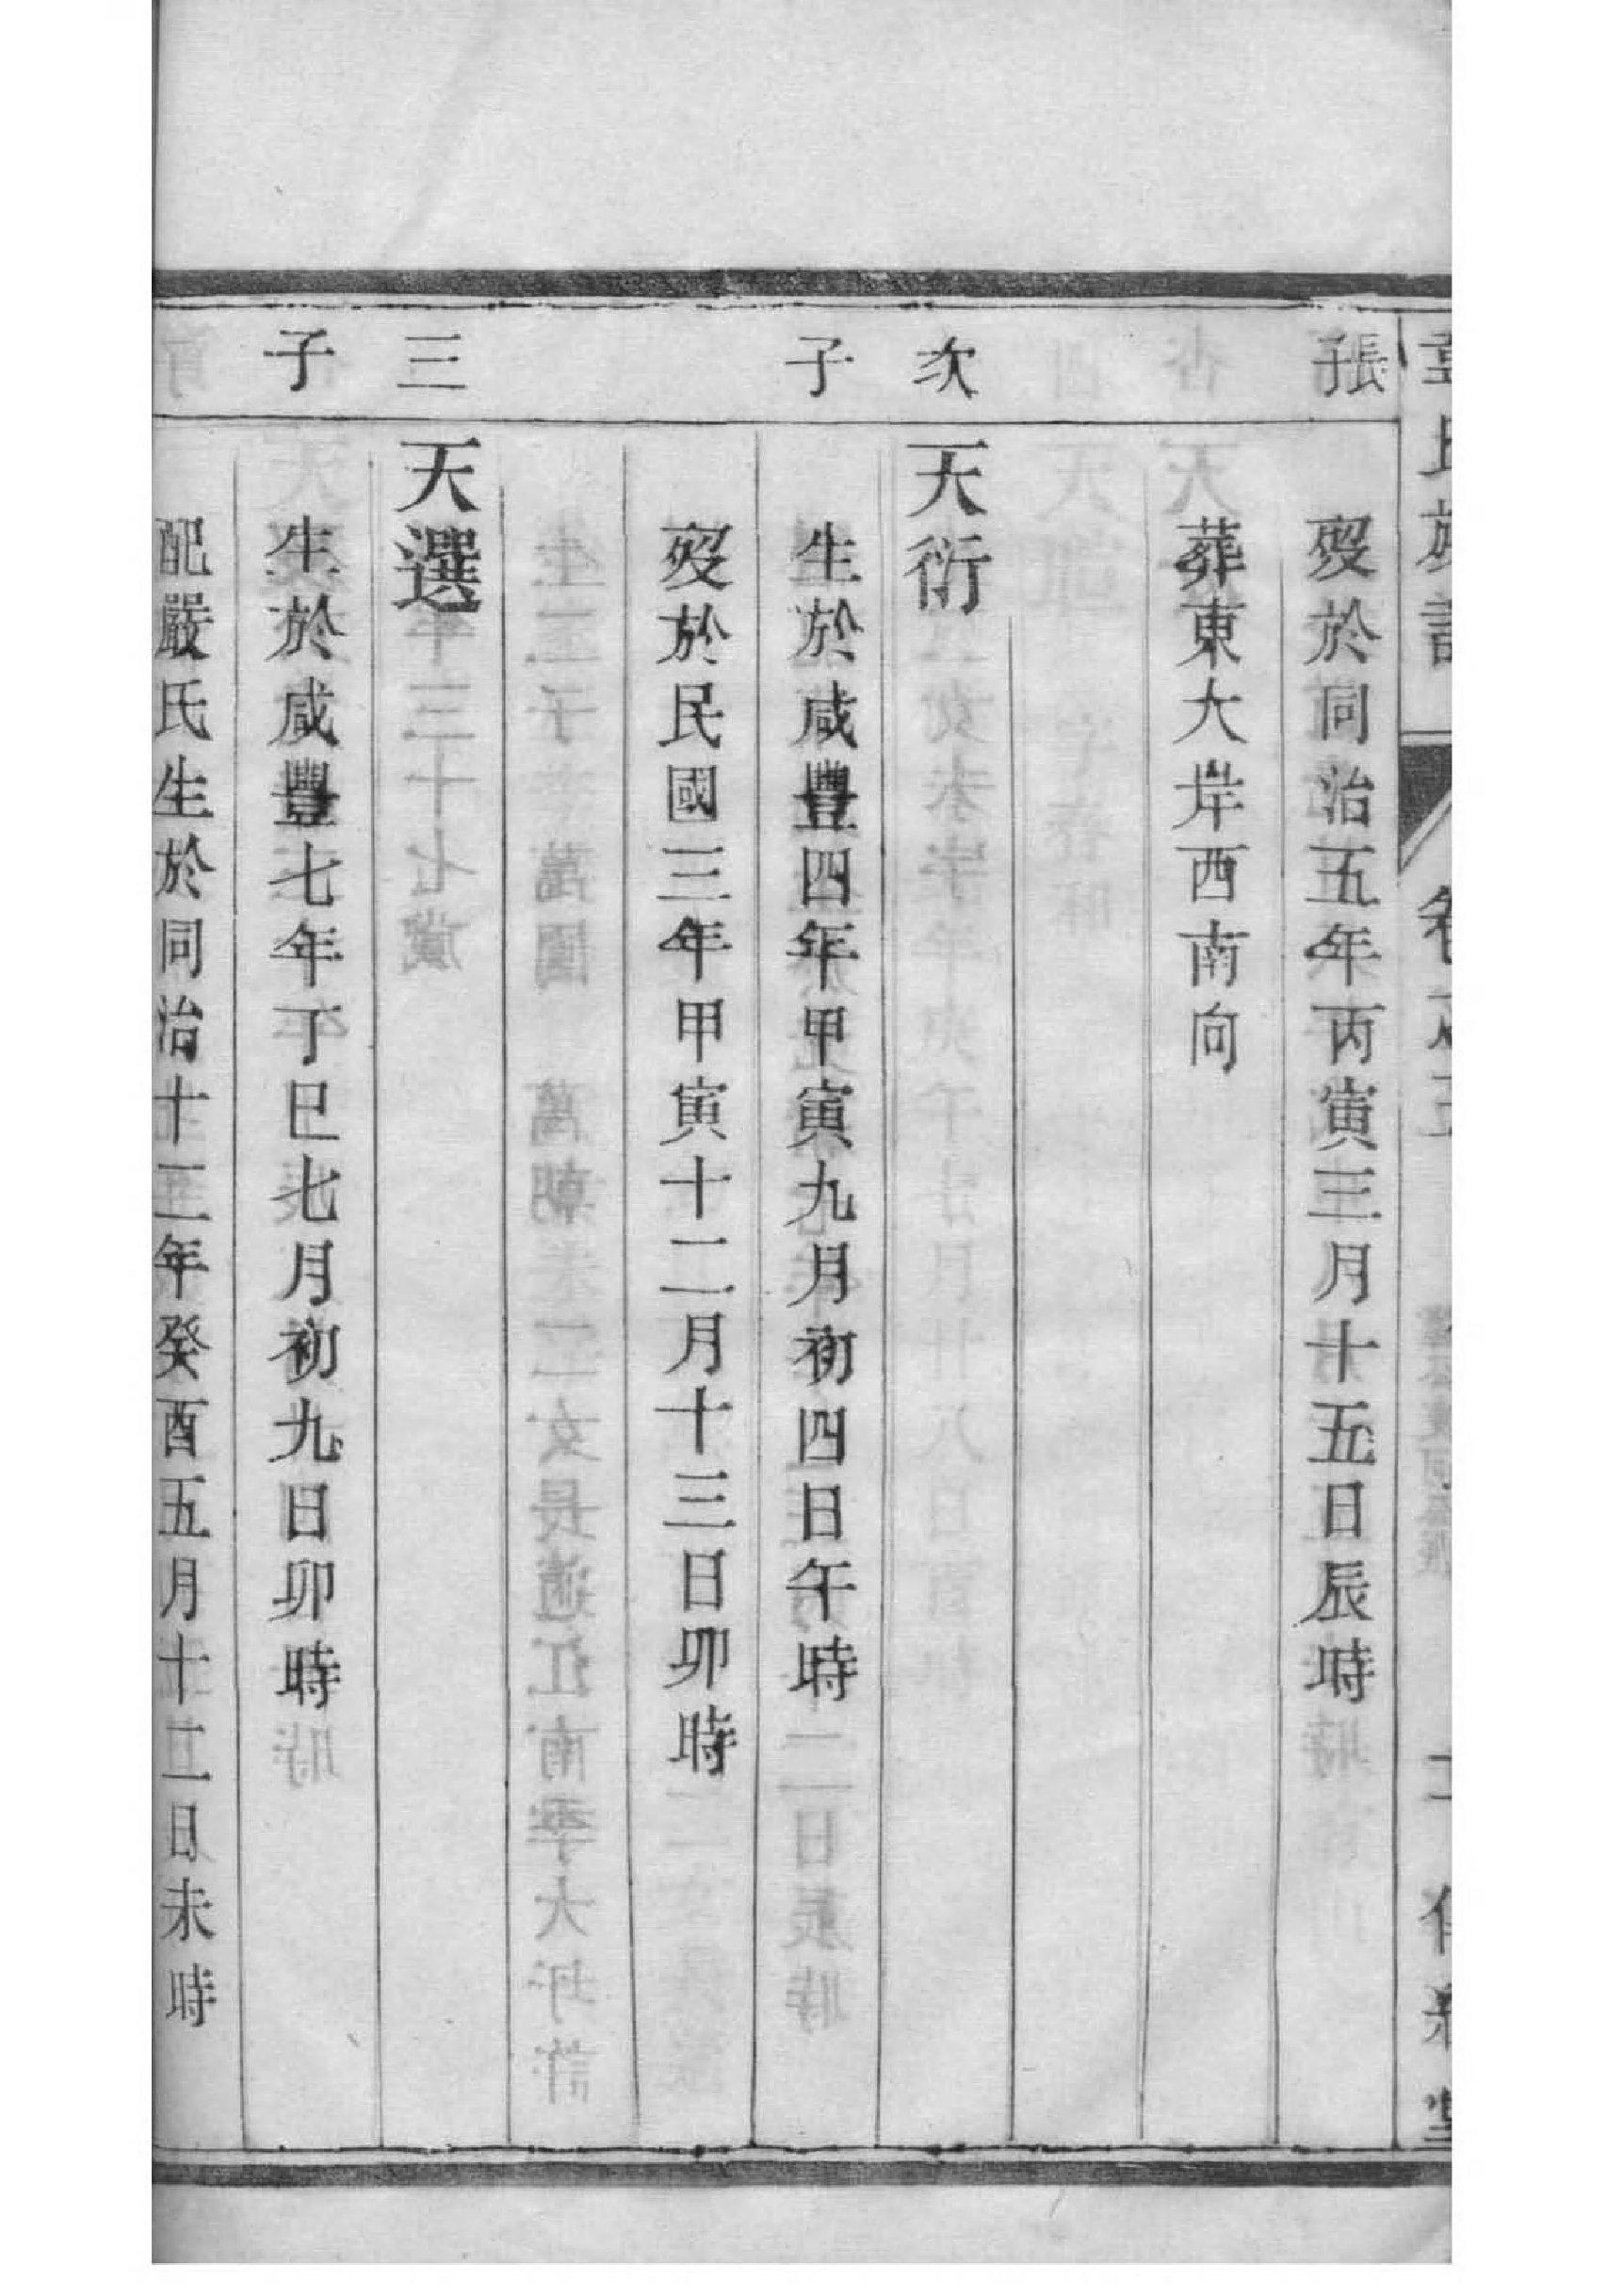 張子
歿於同治五年丙寅三月十五日辰時
葬東大岸西南向
次子
天衍
生於咸豐四年甲寅九月初四日午時
歿於民國三年甲寅十二月十三日卯時
三子
天選
生於咸豐七年丁巳七月初九日卯時
配嚴氏生於同治十二年癸酉五月十二日未時